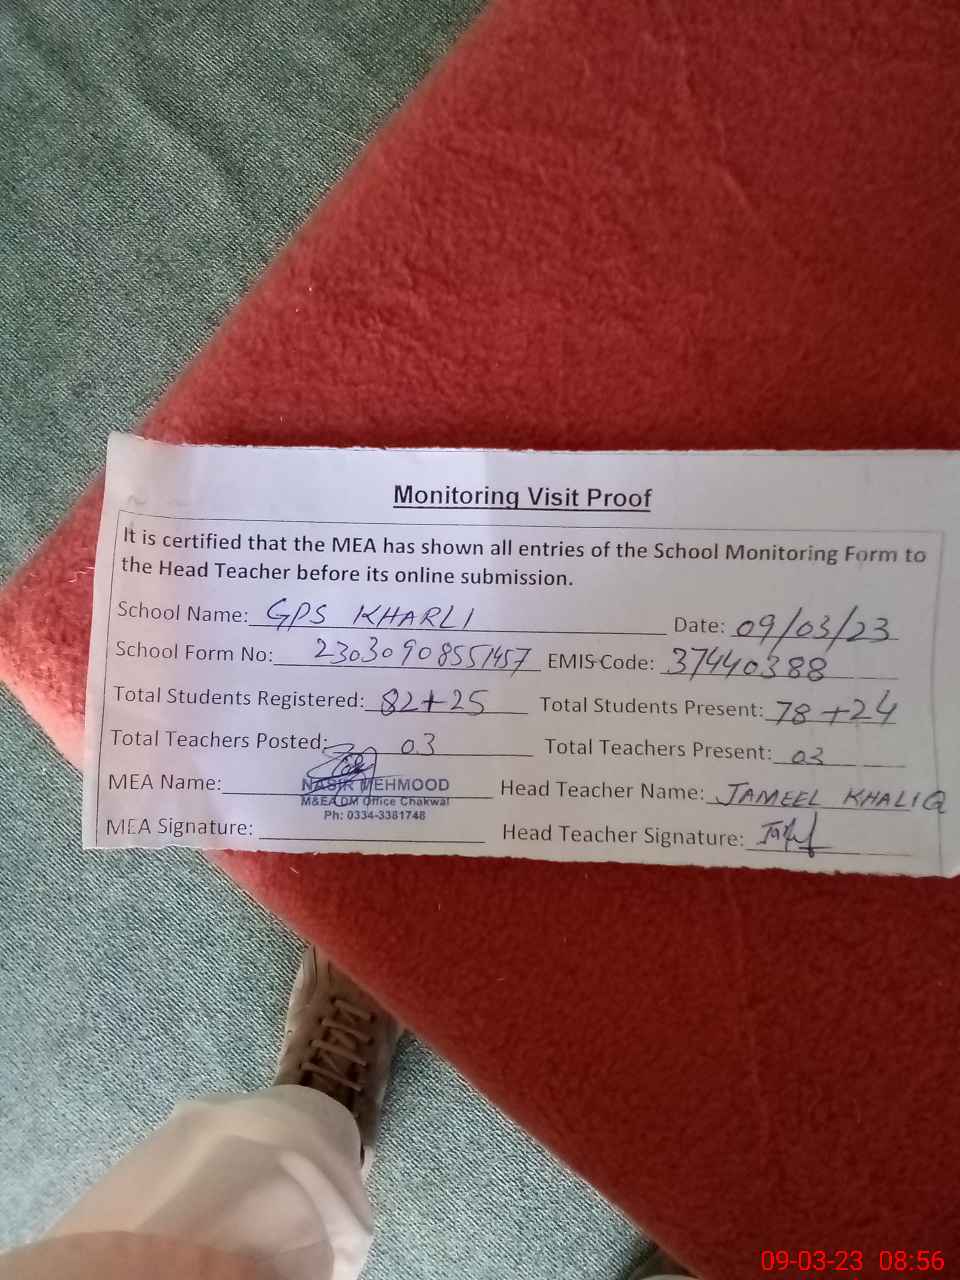 Monitoring Visit Proof
It is certified that the MEA has shown all entries of the School Monitoring Form to
the Head Teacher before its online submission.
School Name: GPS KHARLI Date: 09/03/23
School Form No: 23030908551457 EMIS Code: 37440388
Total Students Registered: 82+25 Total Students Present: 78+24
Total Teachers Posted: 03 Total Teachers Present: 03
MEA Name: NASIR MEHMOOD Head Teacher Name: JAMEEL KHALIQ
M&EA DM Office Chakwal
Ph: 0334-3381748
MEA Signature: Head Teacher Signature:
09-03-23 08:56